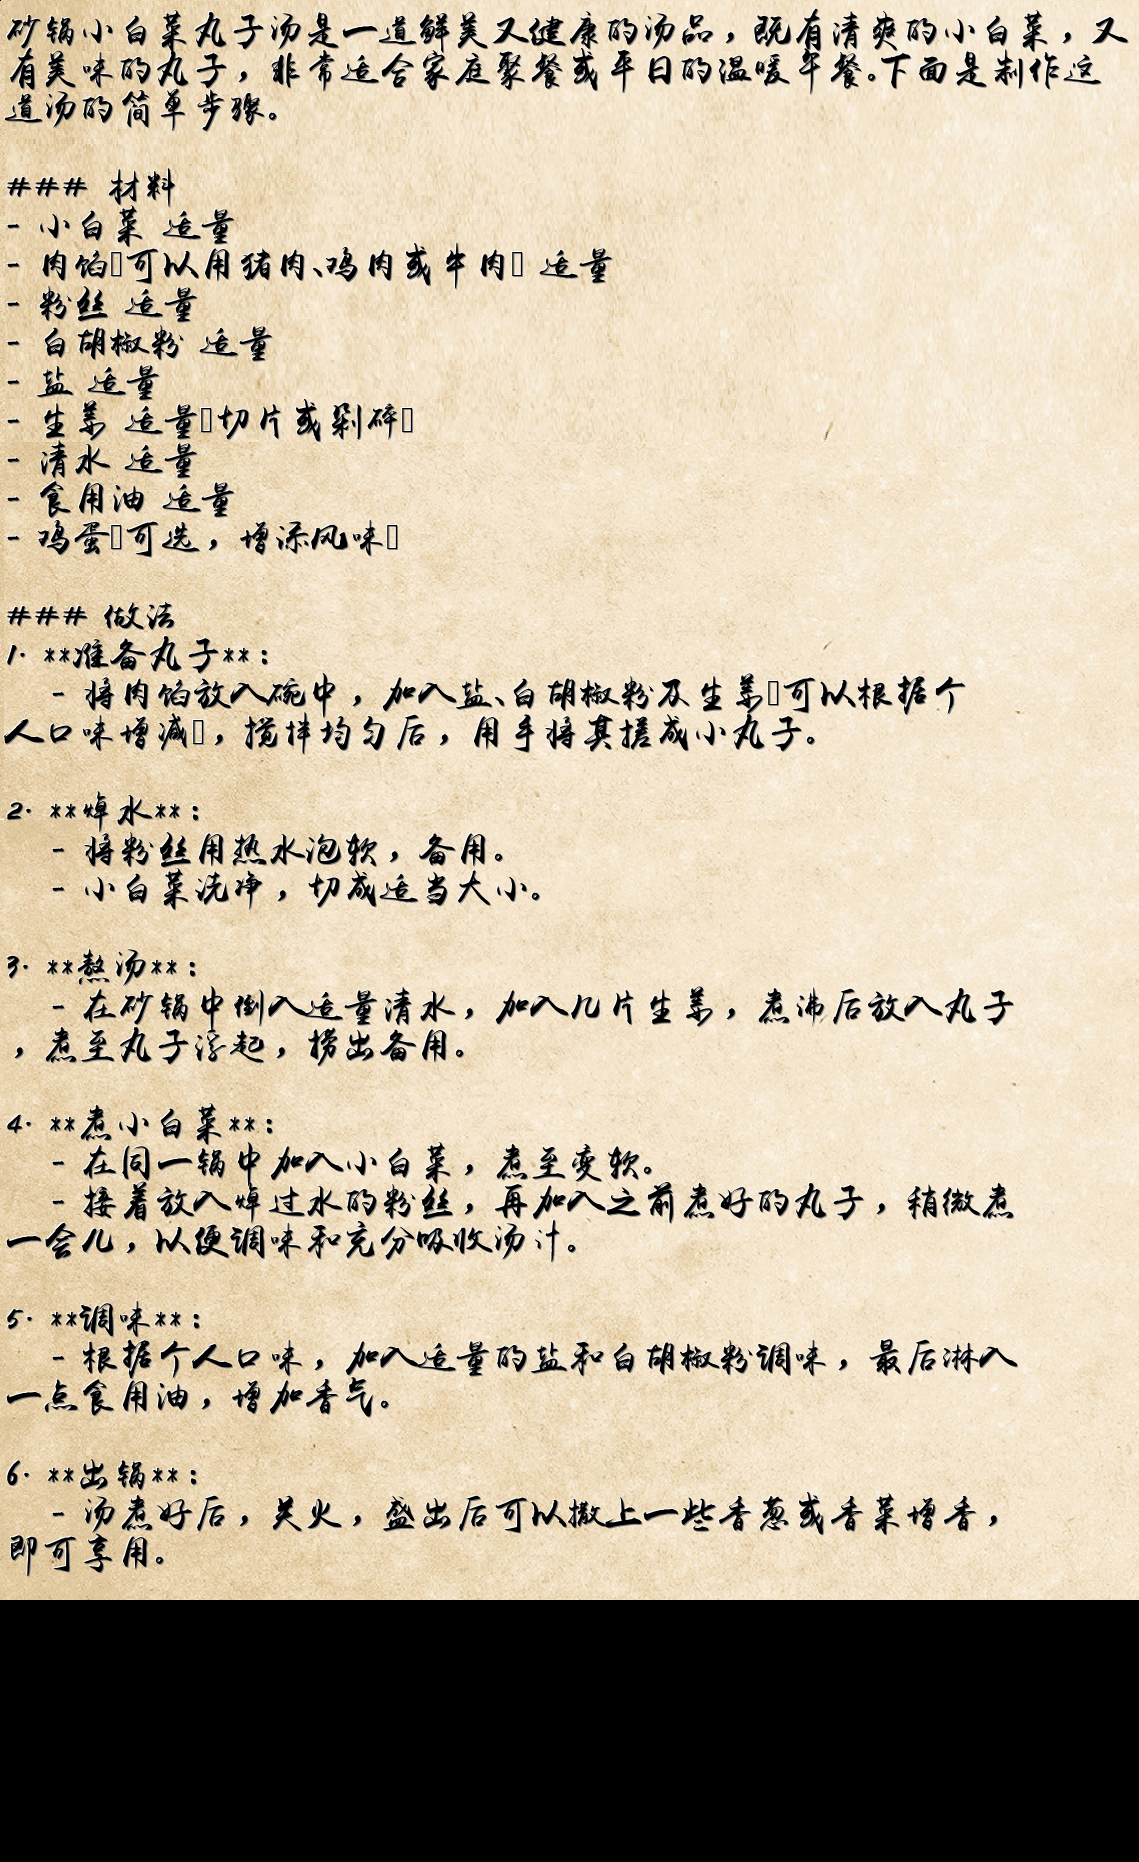 砂锅小白菜丸子汤是一道鲜美又健康的汤品，既有清爽的小白菜，又
有美味的丸子，非常适合家庭聚餐或平日的温暖午餐。下面是制作这
道汤的简单步骤。
### 材料
- 小白菜 适量
- 肉馅▯可以用猪肉、鸡肉或牛肉▯ 适量
- 粉丝 适量
- 白胡椒粉 适量
- 盐 适量
- 生姜 适量▯切片或剁碎▯
- 清水 适量
- 食用油 适量
- 鸡蛋▯可选，增添风味▯
### 做法
1. **准备丸子**：
- 将肉馅放入碗中，加入盐、白胡椒粉及生姜▯可以根据个
人口味增减▯，搅拌均匀后，用手将其搓成小丸子。
2. **焯水**：
- 将粉丝用热水泡软，备用。
- 小白菜洗净，切成适当大小。
3. **熬汤**：
- 在砂锅中倒入适量清水，加入几片生姜，煮沸后放入丸子
，煮至丸子浮起，捞出备用。
4. **煮小白菜**：
- 在同一锅中加入小白菜，煮至变软。
- 接着放入焯过水的粉丝，再加入之前煮好的丸子，稍微煮
一会儿，以便调味和充分吸收汤汁。
5. **调味**：
- 根据个人口味，加入适量的盐和白胡椒粉调味，最后淋入
一点食用油，增加香气。
6. **出锅**：
- 汤煮好后，关火，盛出后可以撒上一些香葱或香菜增香，
即可享用。